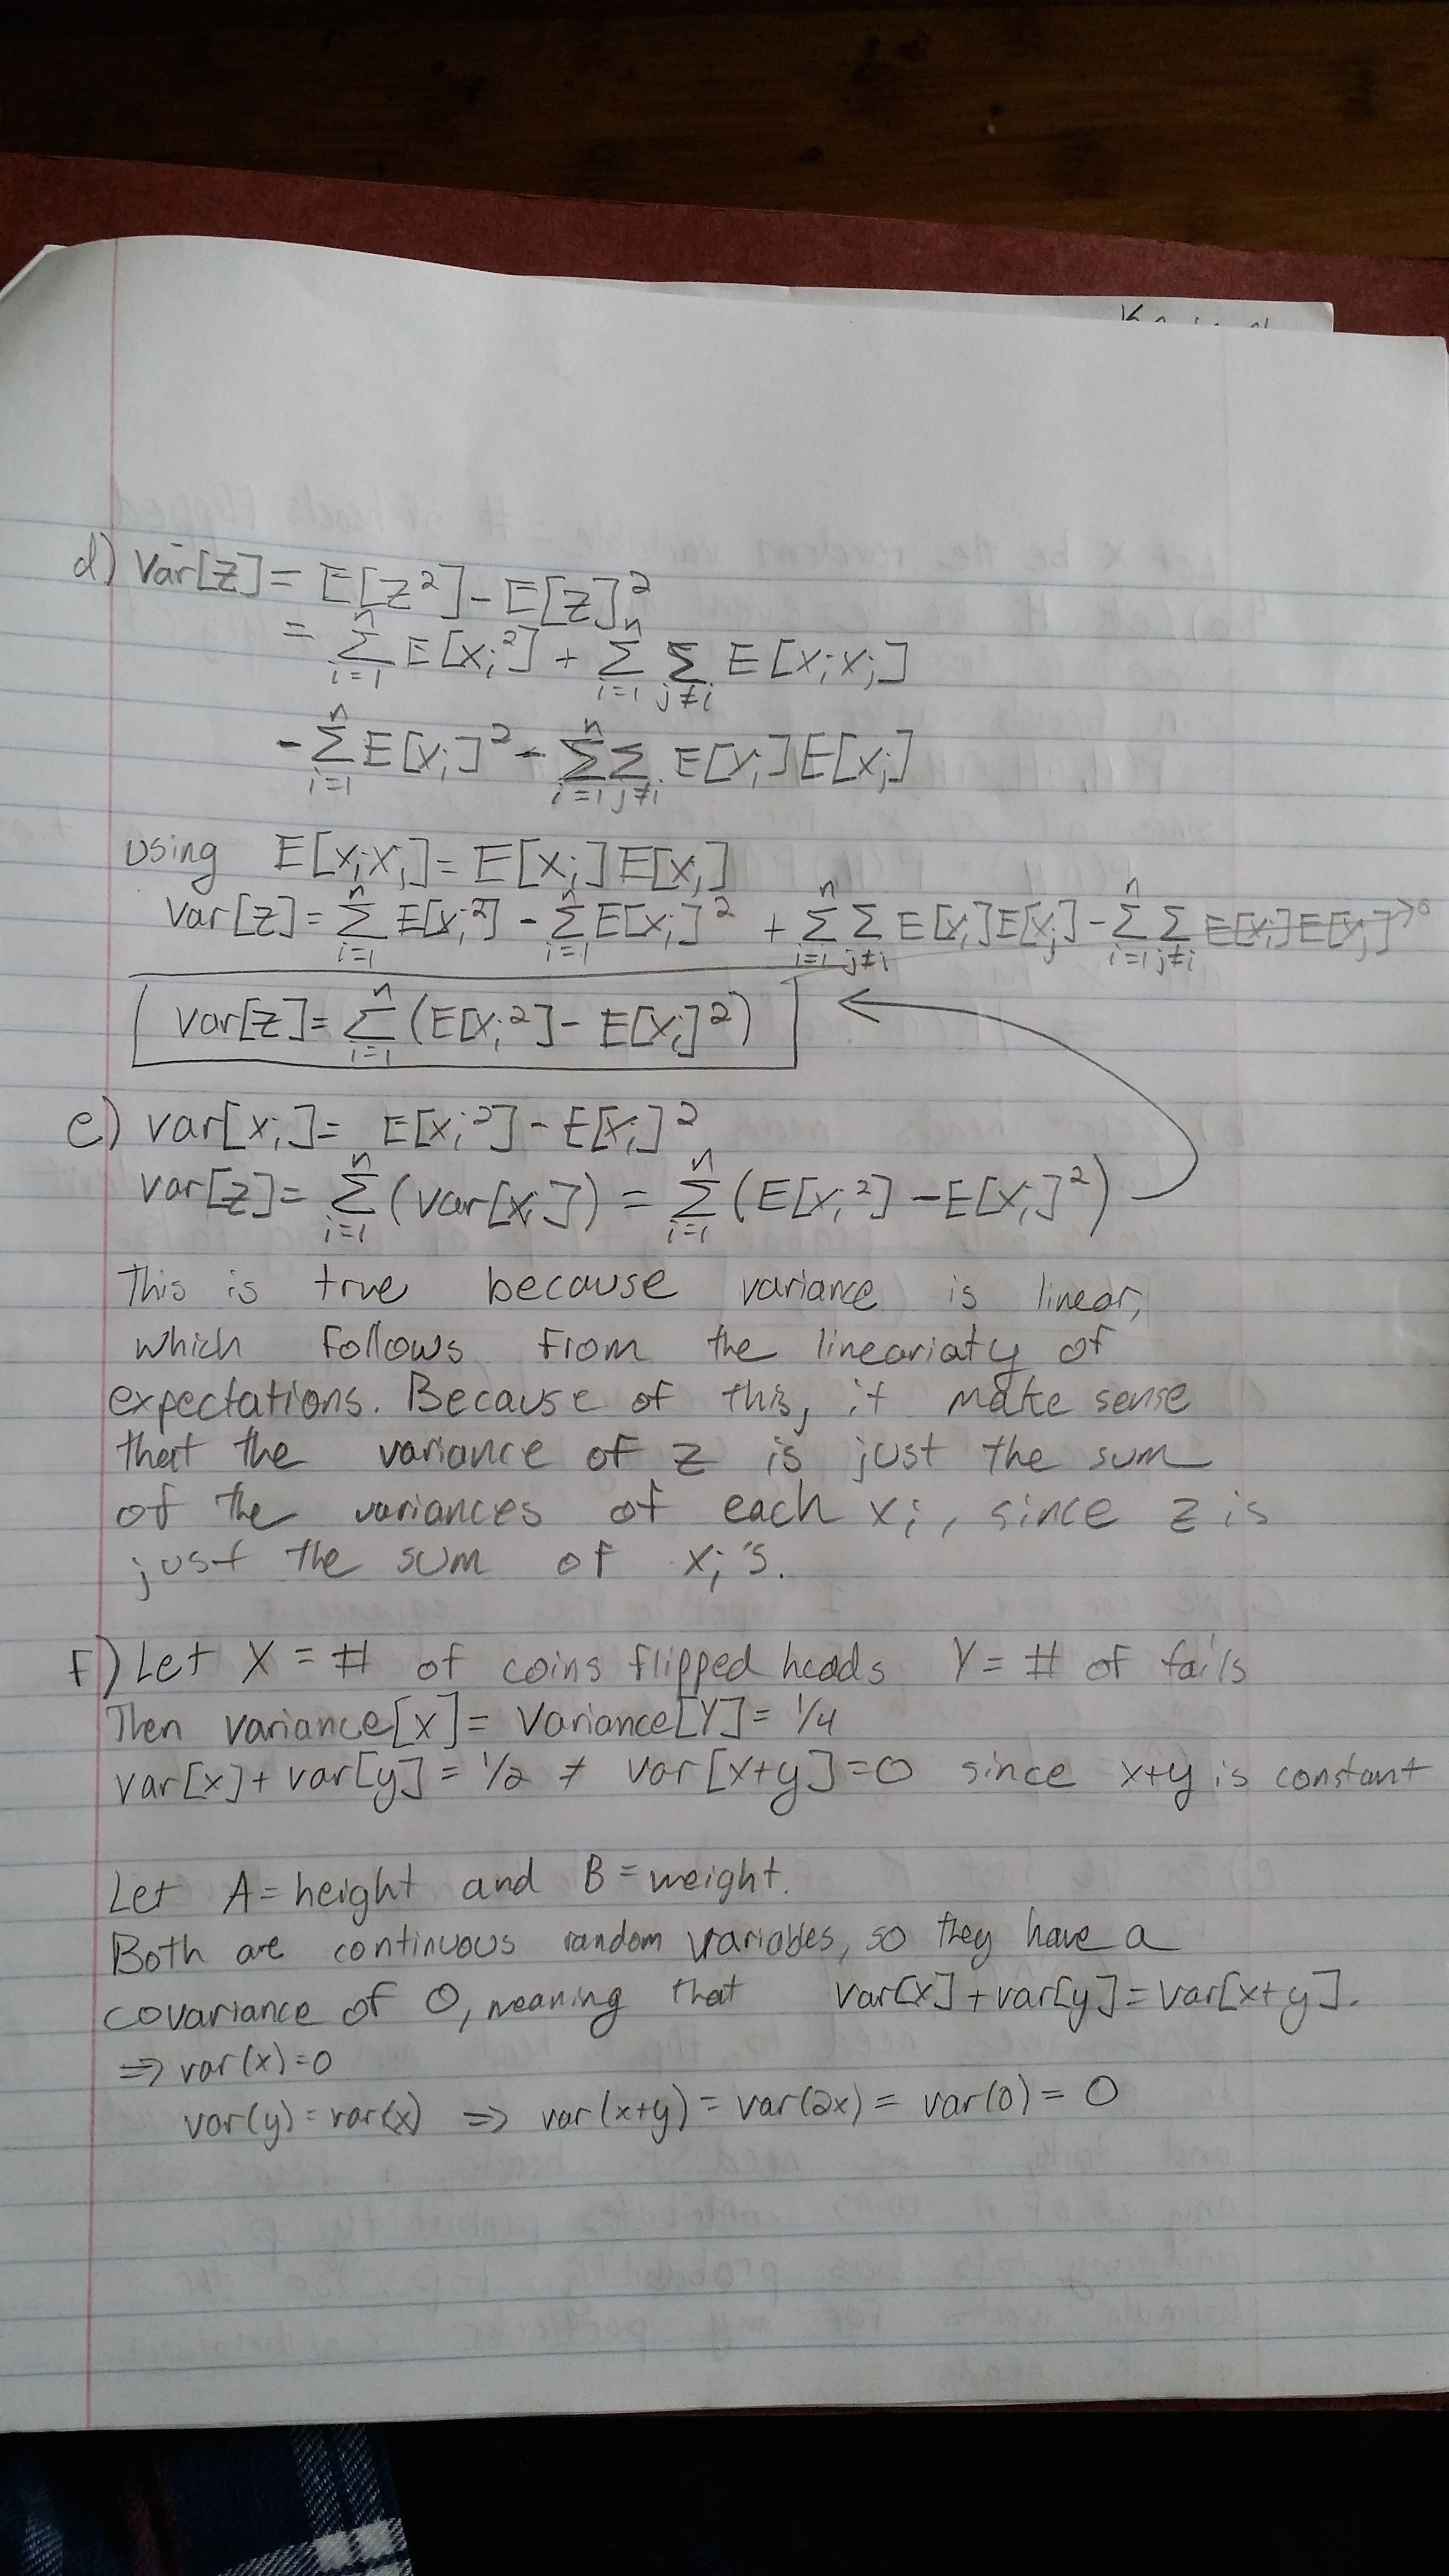 d) Var[z] = E[z²] - E[z]²
= Σ_{i=1}^{n} E[x_i²] + Σ_{i=1}^{n} Σ_{j≠i} E[x_i x_j]
- Σ_{i=1}^{n} E[x_i]² - Σ_{i=1}^{n} Σ_{j≠i} E[x_i]E[x_j]
using E[x_i x_j] = E[x_i]E[x_j]
Var[z] = Σ_{i=1}^{n} E[x_i²] - Σ_{i=1}^{n} E[x_i]² + Σ_{i=1}^{n} Σ_{j≠i} E[x_i]E[x_j] - Σ_{i=1}^{n} Σ_{j≠i} E[x_i]E[x_j] → 0
var[z] = Σ_{i=1}^{n} (E[x_i²] - E[x_i]²)
e) var[x_i] = E[x_i²] - E[x_i]²
var[z] = Σ_{i=1}^{n} (var[x_i]) = Σ_{i=1}^{n} (E[x_i²] - E[x_i]²)
This is true because variance is linear,
which follows from the lineariaty of
expectations. Because of this, it make sense
that the variance of z is just the sum
of the variances of each x_i, since z is
just the sum of x_i's.
f) Let X = # of coins flipped heads Y = # of tails
Then variance[x] = Variance[Y] = 1/4
var[x] + var[y] = 1/2 ≠ var[x+y] = 0 since x+y is constant
Let A = height and B = weight.
Both are continuous random variables, so they have a
covariance of 0, meaning that var[x] + var[y] = var[x+y].
⇒ var(x) = 0
var(y) = var(x) ⇒ var(x+y) = var(2x) = var(0) = 0